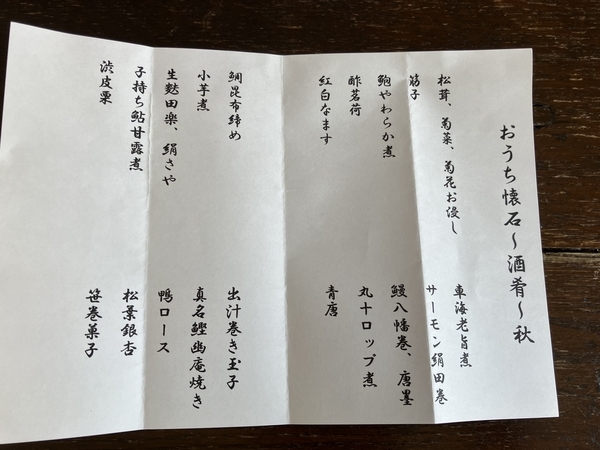 おうち懐石～酒肴～秋
松茸、菊菜、菊花お浸し
筋子
鮑やわらか煮
酢茗荷
紅白なます
鯛昆布締め
小芋煮
生麩田楽、絹さや
子持ち鮎甘露煮
渋皮栗
車海老旨煮
サーモン絹田巻
鰻八幡巻、唐墨
丸十ロップ煮
青唐
出汁巻き玉子
真名鰹幽庵焼き
鴨ロース
松葉銀杏
笹巻菓子